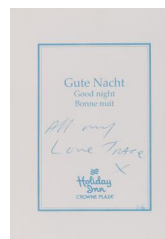 Gute Nacht
Good night
Bonne nuit
All my
Love Trace
X
Holiday
Inn
CROWNE PLAZA